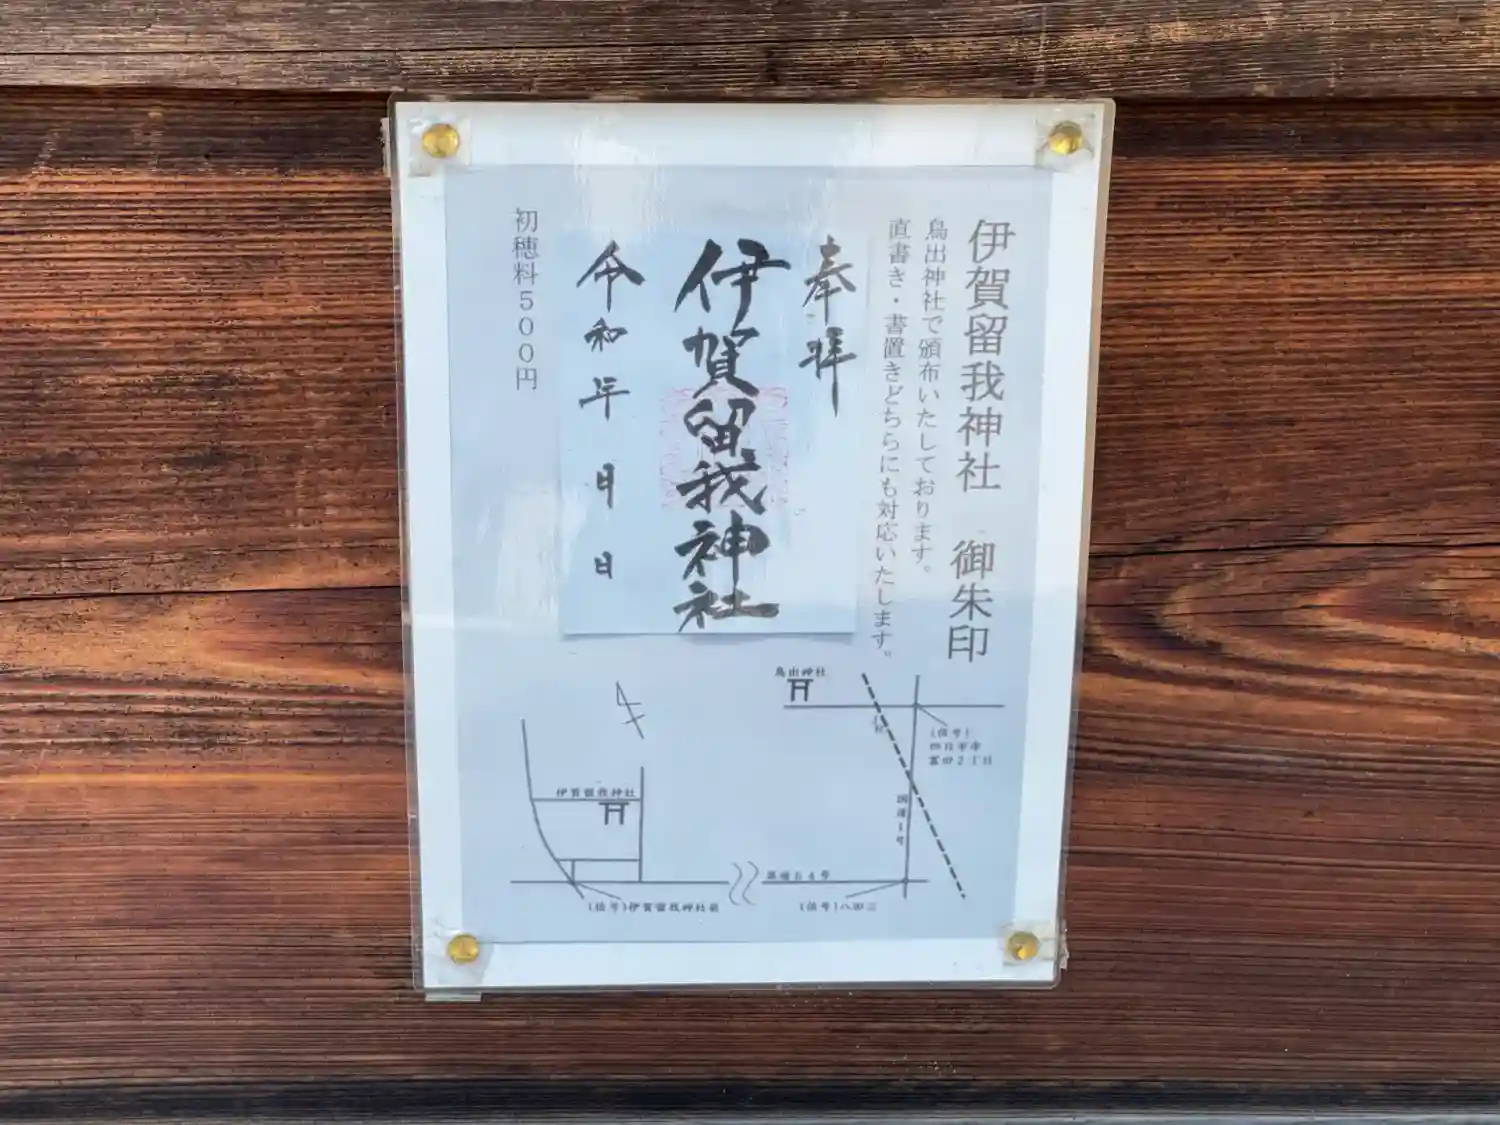 伊賀留我神社　御朱印
鳥出神社で頒布いたしております。
直書き・書置きどちらにも対応いたします。
奉拝
伊賀留我神社
令和 年 月 日
初穂料５００円
鳥出神社
(信号)
四日市市
富田２丁目
国道１号
伊賀留我神社
県道６４号
(信号)伊賀留我神社前
(信号)八田三